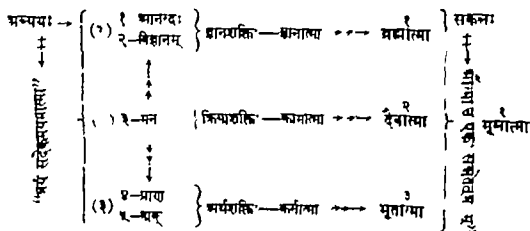 अव्ययः
(१) १ आनन्दः
२-विज्ञानम्
ज्ञानशक्ति — ज्ञानात्मा
१
ब्रह्मात्मा
सकलः
( ) ३-मन
क्रियाशक्ति — कामात्मा
२
दैवात्मा
१
भूमात्मा
(३) ४-प्राण
५-वाक्
अर्थशक्ति — कर्मात्मा
३
भूतात्मा
"त्रयं सदेकमयमात्मा"